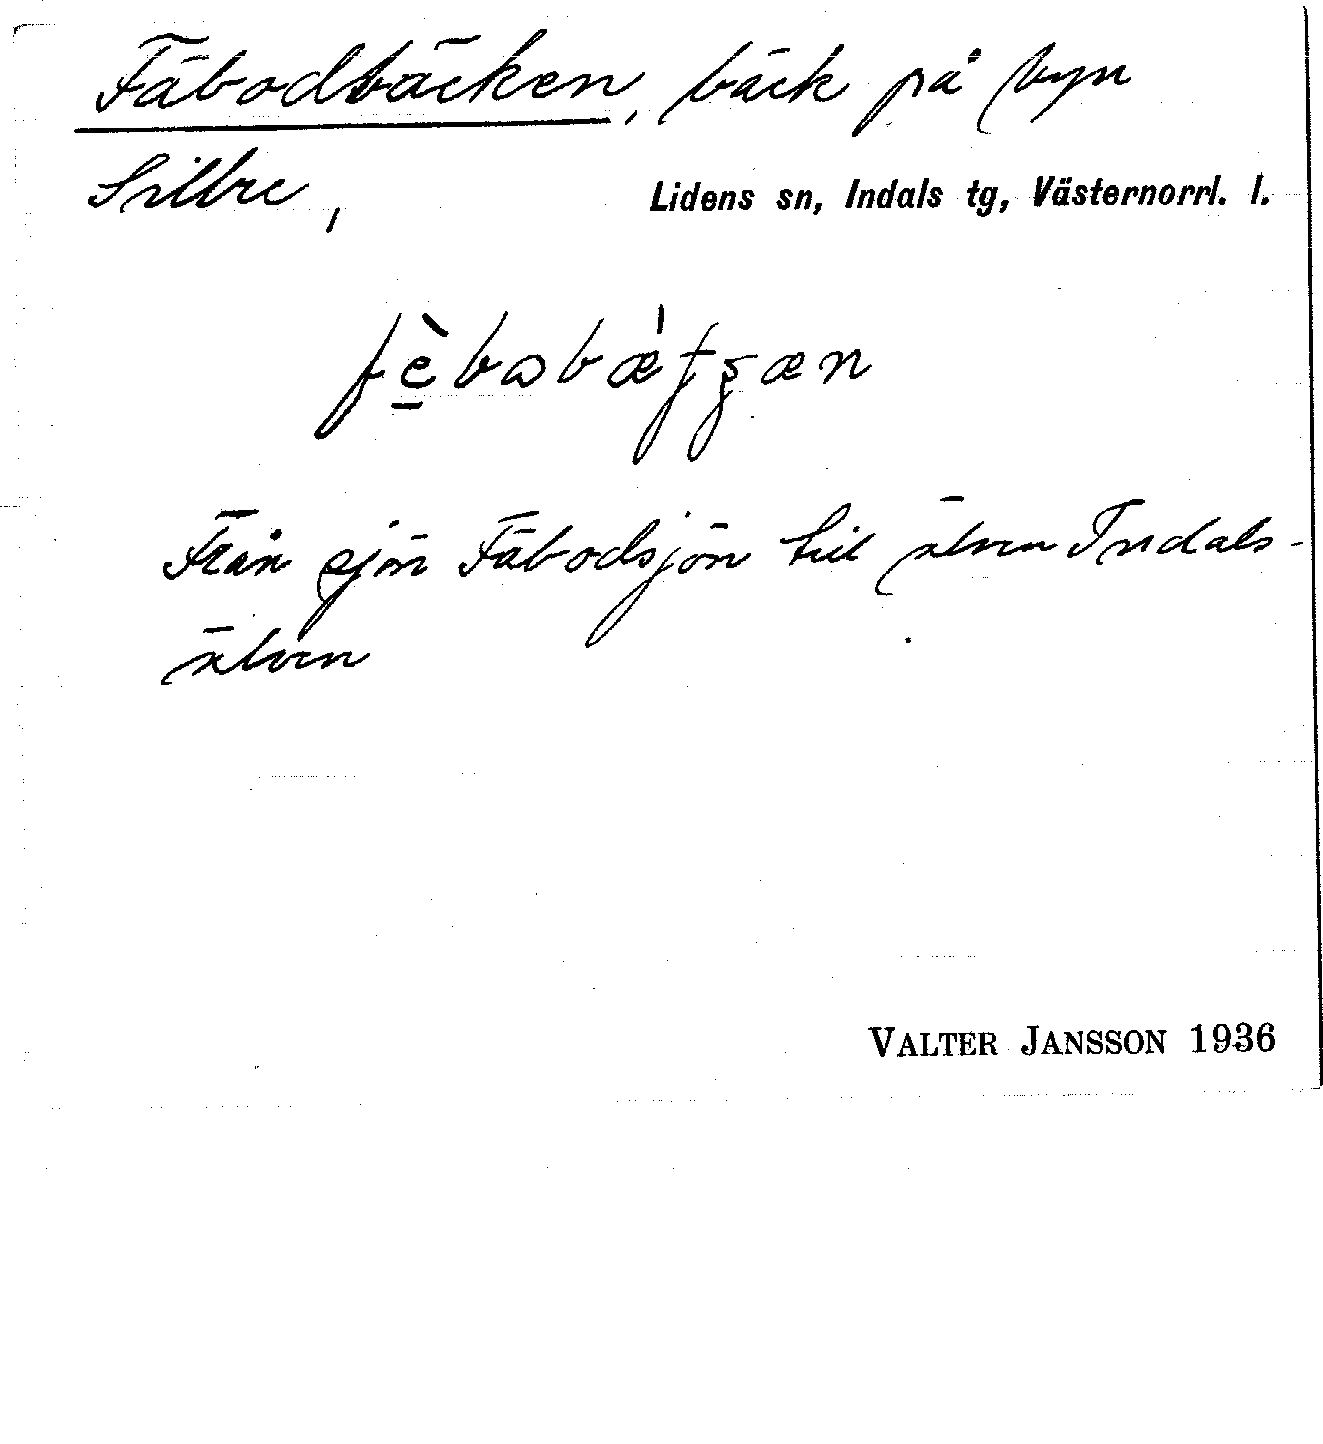 Fäbodbäcken, bäck på byn
Sillre, Lidens sn, Indals tg, Västernorrl. l.
Från sjön Fäbodsjön till älven Indals-
älven
VALTER JANSSON 1936